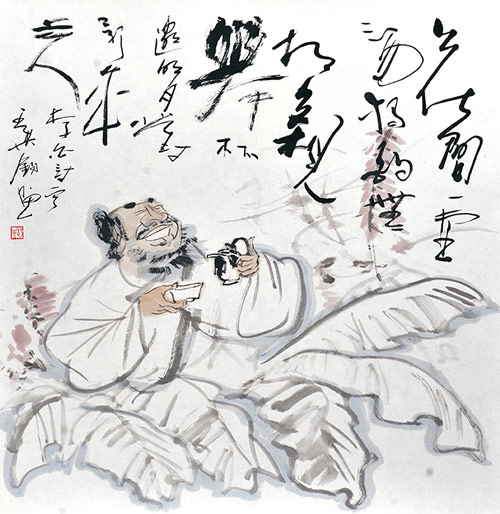 花間一壺
酒獨酌無
相親
舉杯
邀明月對
影成
三人
李白詩意